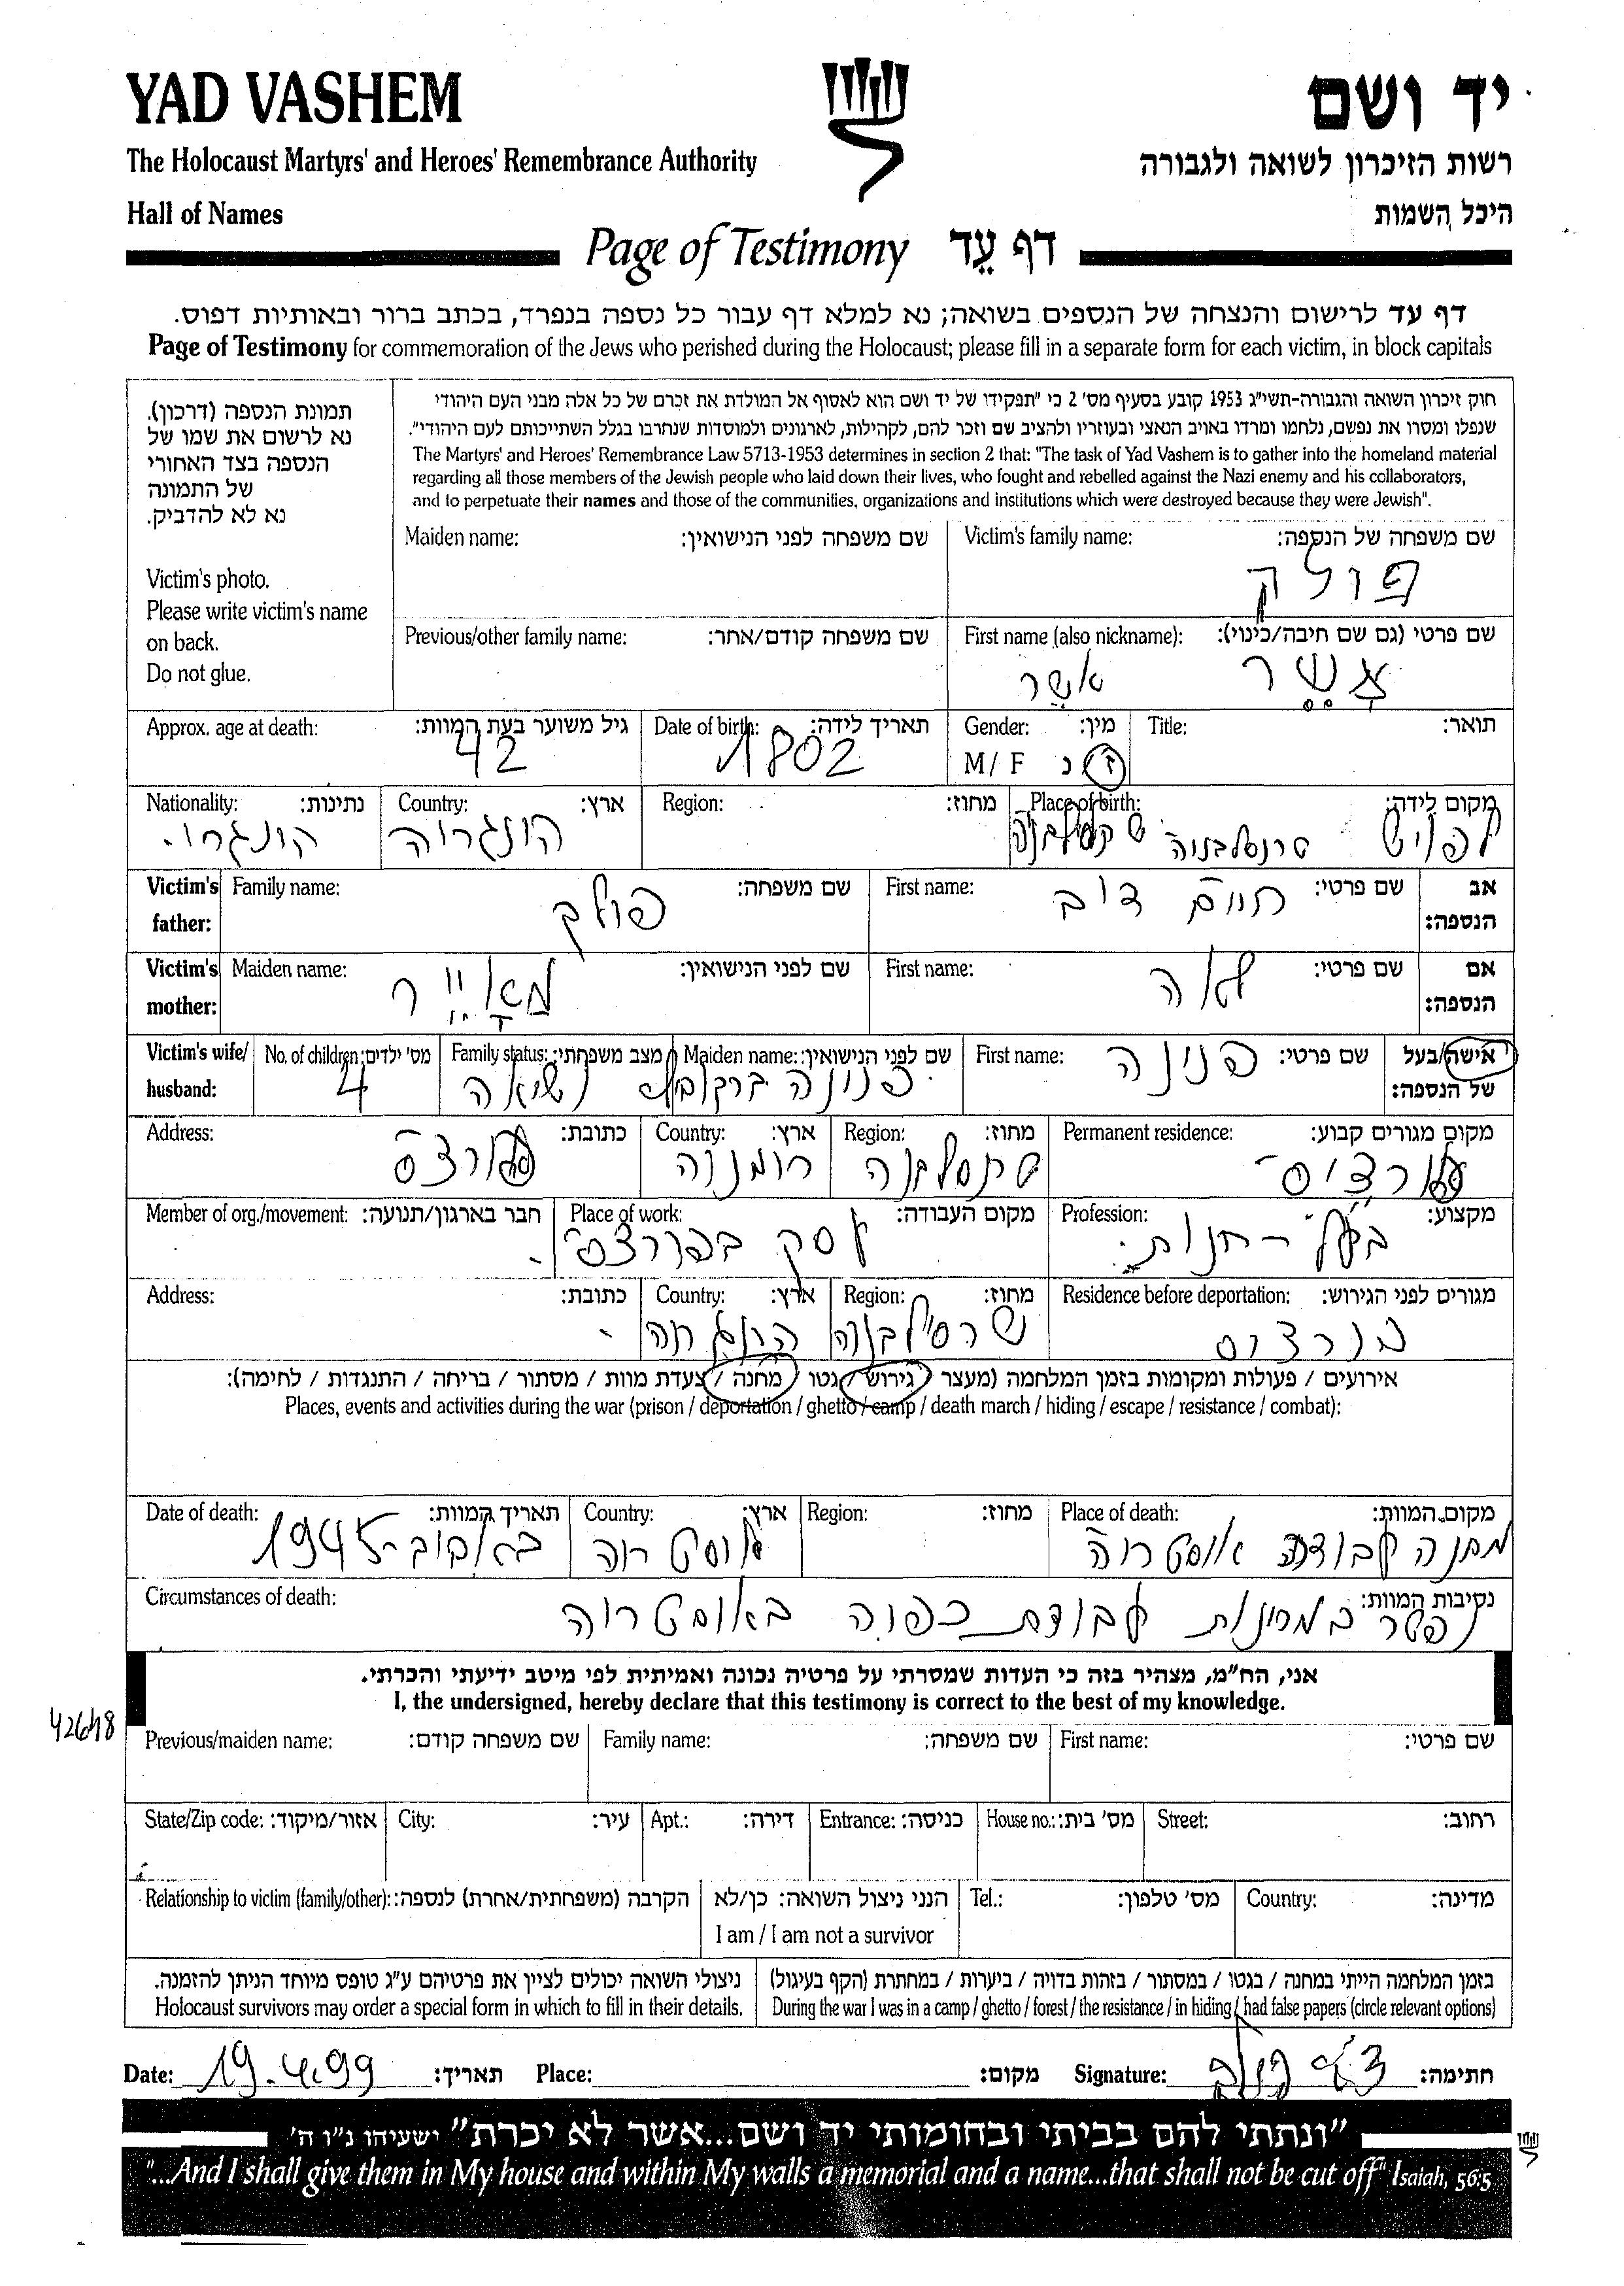 YAD VASHEM
יד ושם
The Holocaust Martyrs' and Heroes' Remembrance Authority
רשות הזיכרון לשואה ולגבורה
Hall of Names
היכל השמות
Page of Testimony דף עֵד
דף עד לרישום והנצחה של הנספים בשואה; נא למלא דף עבור כל נספה בנפרד, בכתב ברור ובאותיות דפוס.
Page of Testimony for commemoration of the Jews who perished during the Holocaust; please fill in a separate form for each victim, in block capitals
תמונת הנספה (דרכון).
נא לרשום את שמו של
הנספה בצד האחורי
של התמונה
נא לא להדביק.
Victim's photo.
Please write victim's name
on back.
Do not glue.
חוק זיכרון השואה והגבורה-תשי"ג 1953 קובע בסעיף מס' 2 כי "תפקידו של יד ושם הוא לאסוף אל המולדת את זכרם של כל אלה מבני העם היהודי
שנפלו ומסרו את נפשם, נלחמו ומרדו באויב הנאצי ובעוזריו ולהציב שם וזכר להם, לקהילות, לארגונים ולמוסדות שנחרבו בגלל השתייכותם לעם היהודי".
The Martyrs' and Heroes' Remembrance Law 5713-1953 determines in section 2 that: "The task of Yad Vashem is to gather into the homeland material
regarding all those members of the Jewish people who laid down their lives, who fought and rebelled against the Nazi enemy and his collaborators,
and to perpetuate their names and those of the communities, organizations and institutions which were destroyed because they were Jewish".
Maiden name: שם משפחה לפני הנישואין: Victim's family name: שם משפחה של הנספה:
פולק
Previous/other family name: שם משפחה קודם/אחר: First name (also nickname): שם פרטי (גם שם חיבה/כינוי):
אשר אשר
Approx. age at death: גיל משוער בעת המוות: Date of birth: תאריך לידה: Gender: מין: Title: תואר:
42 1802 M/ F ז נ
Nationality: נתינות: Country: ארץ: Region: מחוז: Place of birth: מקום לידה:
הונגרו. הונגרוה
Victim's father: Family name: שם משפחה: First name: שם פרטי: אב הנספה:
פולק חיים דוב
Victim's mother: Maiden name: שם לפני הנישואין: First name: שם פרטי: אם הנספה:
מאייר לאה
Victim's wife/ husband: No. of children: מס' ילדים: Family status: מצב משפחתי: Maiden name: שם לפני הנישואין: First name: שם פרטי: אישה/בעל של הנספה:
4 נשוי פנינה
Address: כתובת: Country: ארץ: Region: מחוז: Permanent residence: מקום מגורים קבוע:
רומניה
Member of org./movement: חבר בארגון/תנועה: Place of work: מקום העבודה: Profession: מקצוע:
עסק בעל-חנות
Address: כתובת: Country: ארץ: Region: מחוז: Residence before deportation: מגורים לפני הגירוש:
הונגריה
אירועים / פעולות ומקומות בזמן המלחמה (מעצר / גירוש / גטו / מחנה / צעדת מוות / מסתור / בריחה / התנגדות / לחימה):
Places, events and activities during the war (prison / deportation / ghetto / camp / death march / hiding / escape / resistance / combat):
Date of death: תאריך המוות: Country: ארץ: Region: מחוז: Place of death: מקום המוות:
1945 אוסטריה מחנה עבודה אוסטריה
Circumstances of death: נסיבות המוות:
נפטר במחנות עבודת כפיה באוסטריה
אני, הח"מ, מצהיר בזה כי העדות שמסרתי על פרטיה נכונה ואמיתית לפי מיטב ידיעתי והכרתי.
I, the undersigned, hereby declare that this testimony is correct to the best of my knowledge.
42648
Previous/maiden name: שם משפחה קודם: Family name: שם משפחה: First name: שם פרטי:
State/Zip code: אזור/מיקוד: City: עיר: Apt.: דירה: Entrance: כניסה: House no.: מס' בית: Street: רחוב:
Relationship to victim (family/other): הקרבה (משפחתית/אחרת) לנספה: הנני ניצול השואה: כן/לא Tel.: מס' טלפון: Country: מדינה:
I am / I am not a survivor
ניצולי השואה יכולים לציין את פרטיהם ע"ג טופס מיוחד הניתן להזמנה. בזמן המלחמה הייתי במחנה / בגטו / במסתור / בזהות בדויה / ביערות / במחתרת (הקף בעיגול)
Holocaust survivors may order a special form in which to fill in their details. During the war I was in a camp / ghetto / forest / the resistance / in hiding / had false papers (circle relevant options)
Date: 19.4.99 תאריך: Place: מקום: Signature: פולק חתימה:
"ונתתי להם בביתי ובחומותי יד ושם...אשר לא יכרת" ישעיהו נ"ו ה'
"...And I shall give them in My house and within My walls a memorial and a name...that shall not be cut off" Isaiah, 56:5